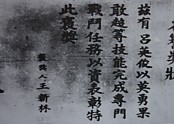 茲有呂英俊以英勇果
敢超等技能完成專門
戰鬥任務以資表彰特
此褒獎
王新林